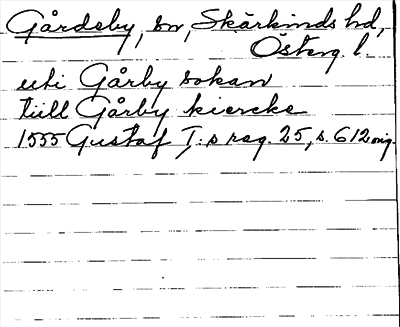 Gårdeby, sn, Skärkinds hd,
Österg. l.
uti Gårby sokan
tiill Gårby kiercke
1555 Gustaf I:s reg. 25, s. 612 orig.